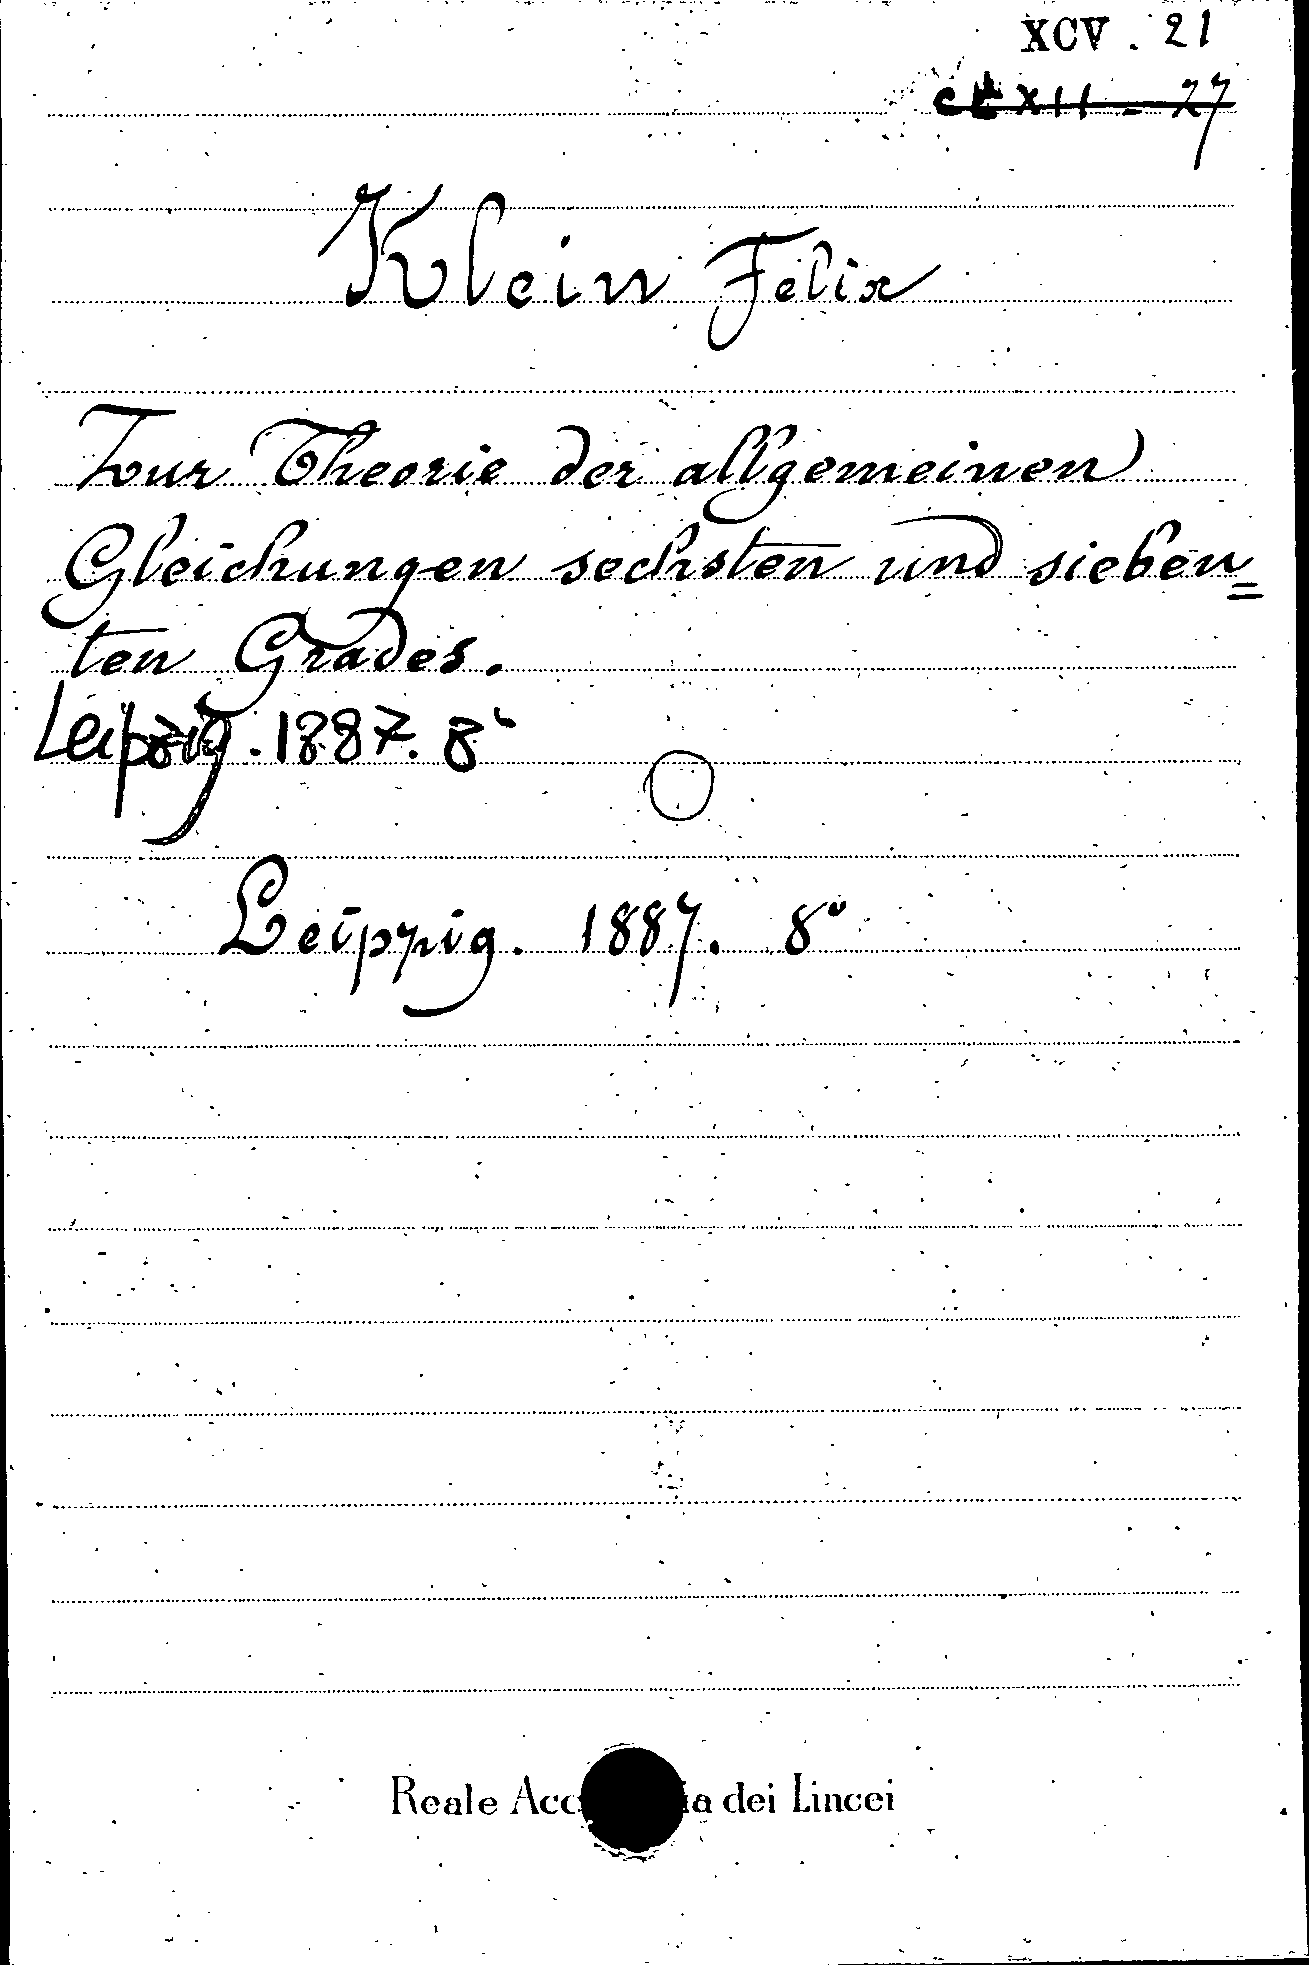 XCV. 21
CLXII - 27
Klein Felix
Zur Theorie der allgemeinen
Gleichungen sechsten und sieben=
ten Grades.
Leipzig. 1887. 8°
Leipzig. 1887. 8°
Reale Acc ia dei Lincei